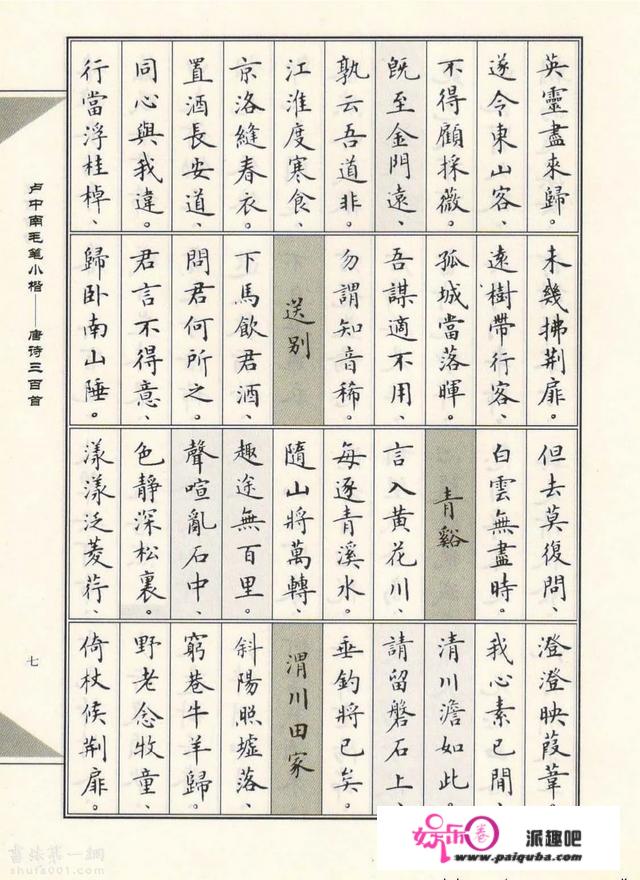 英靈盡來歸。
遂令東山客、
不得顧採薇。
既至金門遠、
孰云吾道非。
江淮度寒食、
京洛縫春衣。
置酒長安道、
同心與我違。
行當浮桂棹、
未幾拂荆扉。
遠樹帶行客、
孤城當落暉。
吾謀適不用、
勿謂知音稀。
送别
下馬飲君酒、
問君何所之。
君言不得意、
歸卧南山陲。
但去莫復問、
白雲無盡時。
青谿
言入黄花川、
每逐青溪水。
隨山將萬轉、
趣途無百里。
聲喧亂石中、
色靜深松裏。
漾漾泛菱荇、
澄澄映葭葦。
我心素已閒、
清川澹如此。
請留磐石上、
垂釣將已矣。
渭川田家
斜陽照墟落、
窮巷牛羊歸。
野老念牧童、
倚杖候荆扉。
卢中南毛笔小楷 唐诗三百首
七
書法第一網
shufa001.com
娱乐圈 派趣吧
www.paiquba.com